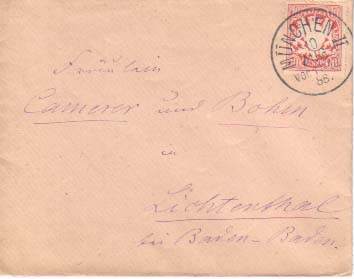 MÜNCHEN II
VOR
88.
Fräulein
Camerer und Bohm
in
Lichtenthal
bei Baden-Baden.